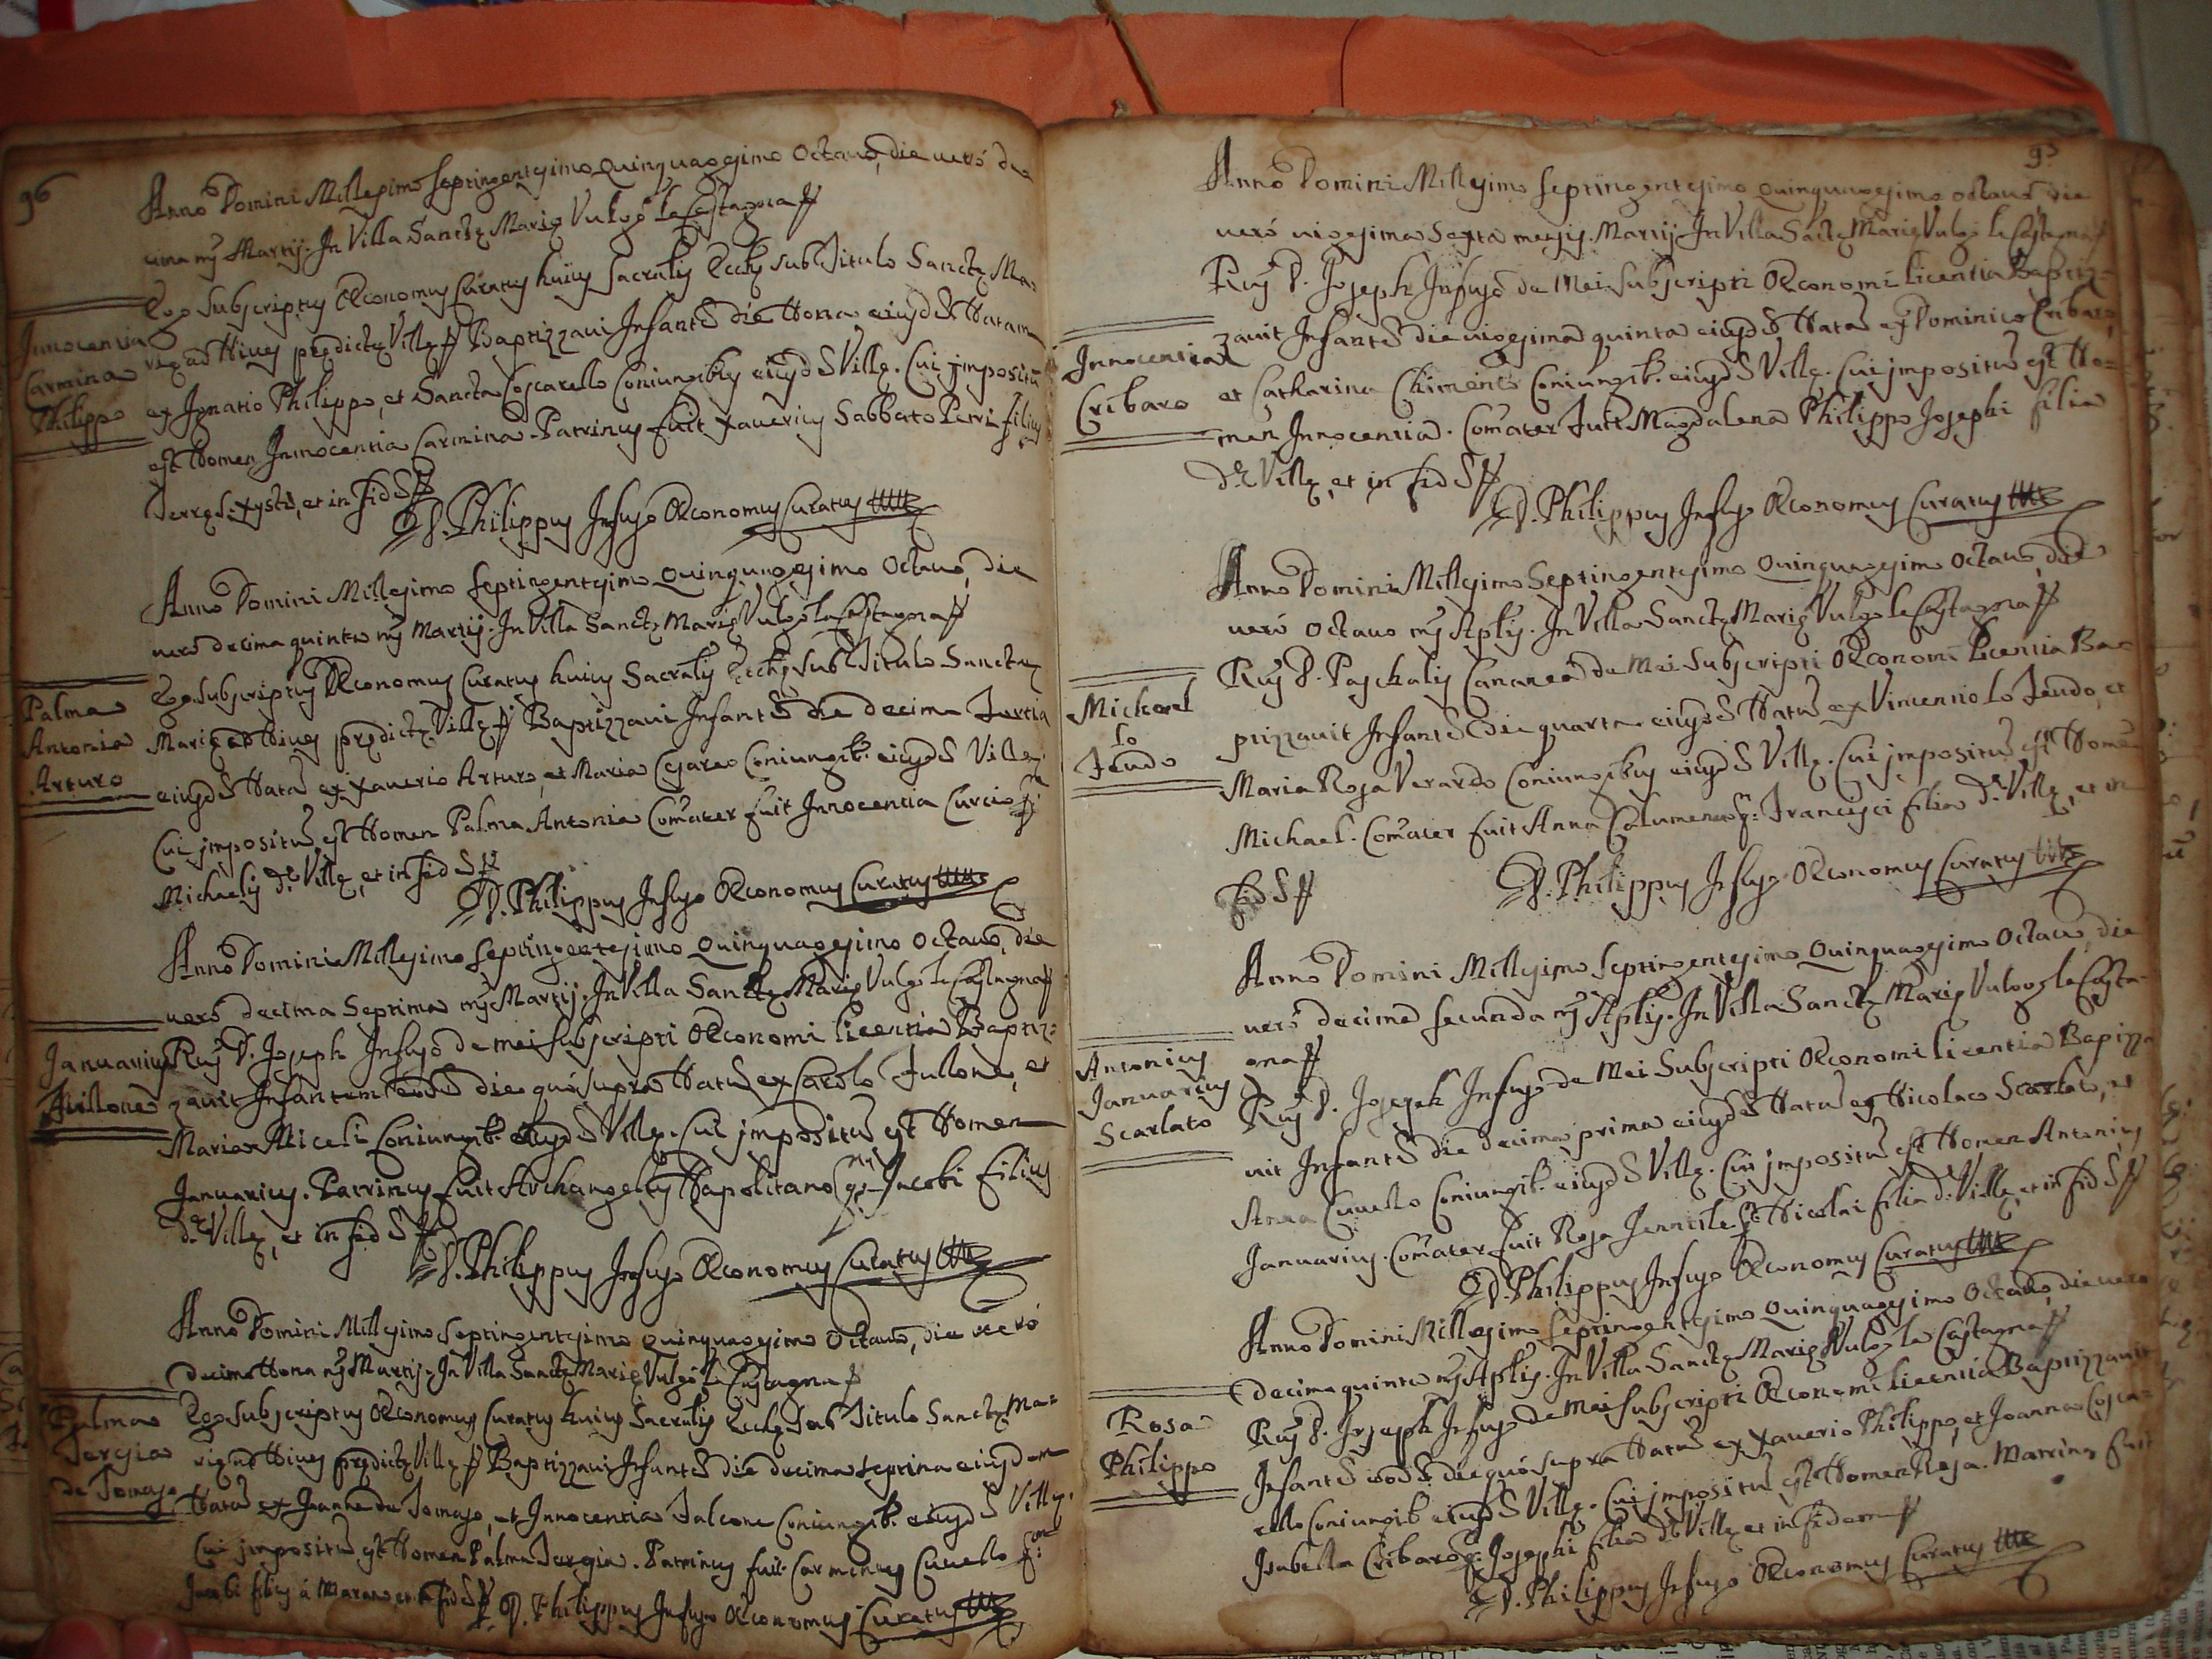 96
Anno Domini Millesimo Septingentesimo Quinquagesimo Octauo, die ueró de
cima mẽ Martij. In Villa Sanctę Marię Vulgò le Castagna ff
Ego Subscriptus Œconomus Curatus huius Sacralis Eccłę sub Titulo Sanctę Ma=
Innocentia
Carmina
Philippo
rię ad Niues prędictę Villę ff Baptizzaui Infantẽ die Nona eiusdẽ Natam
ex Ignatio Philippo, et Sancta Coscarello Coniungibus eiusdẽ Villę. Cui impositũ
est Nomen Innocentia Carmina. Patrinus fuit Xauerius Sabbato Petri filius
Terrę S. Xysti, et in fidẽ ff
D. Philippus Infuso Œconomus Curatus
Anno Domini Millesimo Septingentesimo Quinquagesimo Octauo, die
ueró decima quinta mẽ Martij. In Villa Sanctę Marię Vulgò le Castagna ff
Ego Subscriptus Œconomus Curatus huius Sacralis Eccłę sub Titulo Sanctę
Palma
Antonia
Arturo
Marię ad Niues prędictę Villę ff Baptizzaui Infantẽ die decima Tertia
eiusdẽ Natã ex Xauerio Arturo, et Maria Cesareo Coniungib. eiusdẽ Villę.
Cui impositũ est Nomen Palma Antonia Com̃ater fuit Innocentia Curcio
Michaelis d.ę Villę, et in fidẽ ff
D. Philippus Infuso Œconomus Curatus
Anno Domini Millesimo Septingentesimo Quinquagesimo Octauo, die
ueró decima Septima mẽ Martij. In Villa Sanctę Marię Vulgò le Castagna ff
Januarius
Fullone
Rụs D. Joseph Infuso de mei subscripti Œconomi licentia Baptiz=
zauit Infantem eodẽ die quó supra Natũ ex Carolo Fullone, et
Maria Miceli Coniungib. eiusdẽ Villę. Cui impositũ est Nomen
Januarius. Patrinus fuit Archangelus Napolitano Jacobi Filius
d.ę Villę, et in fidẽ ff
D. Philippus Infuso Œconomus Curatus
Anno Domini Millesimo Septingentesimo Quinquagesimo Octauo, die ueró
decima Nona mẽ Martij. In Villa Sanctę Marię Vulgò le Castagna ff
Palma
Tergia
de Tomaso
Ego Subscriptus Œconomus Curatus huius Sacralis Eccłę sub Titulo Sanctę Ma=
rię ad Niues prędictę Villę ff Baptizzaui Infantẽ die decima septima eiusdem
Natã ex Joanne de Tomaso, et Innocentia Falcone Coniungib. eiusdẽ Villę.
Cui impositũ est Nomen Palma Tergia. Patrinus fuit Carminus Cuuello
Jacobi filius á Marano, et in fidẽ ff
D. Philippus Infuso Œconomus Curatus
Anno Domini Millesimo Septingentesimo Quinquagesimo Octauo, die
ueró uigesima Sexta mensis Martij. In Villa Sãctę Marię Vulgò le Castagna ff
Rụs D. Joseph Infuso de Mei Subscripti Œconomi licentia Baptiz=
Innocentia
Cribaro
zauit Infantẽ die uigesima quinta eiusdẽ Natã ex Dominico Cribaro,
et Catharina Chimento Coniungib. eiusdẽ Villę. Cui impositũ est No=
men Innocentia. Com̃ater fuit Magdalena Philippo Josephi filia
d.ę Villę, et in fidẽ ff
D. Philippus Infuso Œconomus Curatus
Anno Domini Millesimo Septingentesimo Quinquagesimo Octauo, die
ueró Octauo mẽ Aplis. In Villa Sanctę Marię Vulgò le Castagna ff
Rụs D. Paschalis Cananea de Mei Subscripti Œconomi licentia Ba=
Michael
lo
Feudo
ptizzauit Infantẽ die quarta eiusdẽ Natũ ex Vincentio lo Feudo, et
Maria Rosa Verardo Coniungibus eiusdẽ Villę. Cui impositũ est Nomen
Michael. Com̃ater fuit Anna Calumena q: Francisci filia d.ę Villę, et in
fidẽ ff
D. Philippus Infuso Œconomus Curatus
Anno Domini Millesimo Septingentesimo Quinquagesimo Octauo, die
ueró decima secunda mẽ Aplis. In Villa Sanctę Marię Vulgò le Casta=
gna ff
Antonius
Januarius
Scarlato
Rụs D. Joseph Infuso de Mei Subscripti Œconomi licentia Bapizza
uit Infantẽ die decima prima eiusdẽ Natũ ex Nicolao Scarlato, et
Anna Cuuello Coniungib. eiusdẽ Villę. Cui impositũ est Nomen Antonius
Januarius. Com̃ater fuit Rosa Jentile q: Nicolai filia d.ę Villę, et in fidẽ ff
D. Philippus Infuso Œconomus Curatus
Anno Domini Millesimo Septingentesimo Quinquagesimo Octauo, die uero
decima quinta mẽ Aplis. In Villa Sanctę Marię Vulgò le Castagna ff
Rosa
Philippo
Rụs D. Joseph Infuso de Mei Subscripti Œconomi licentia Baptizzauit
Infantẽ eodẽ die quó supra Natã ex Xauerio Philippo, et Joanna Cosca=
rello Coniungib. eiusdẽ Villę. Cui impositũ est Nomen Rosa. Matrina fuit
Isabella Cribaro q: Josephi filia d.ę Villę et in fidem ff
D. Philippus Infuso Œconomus Curatus